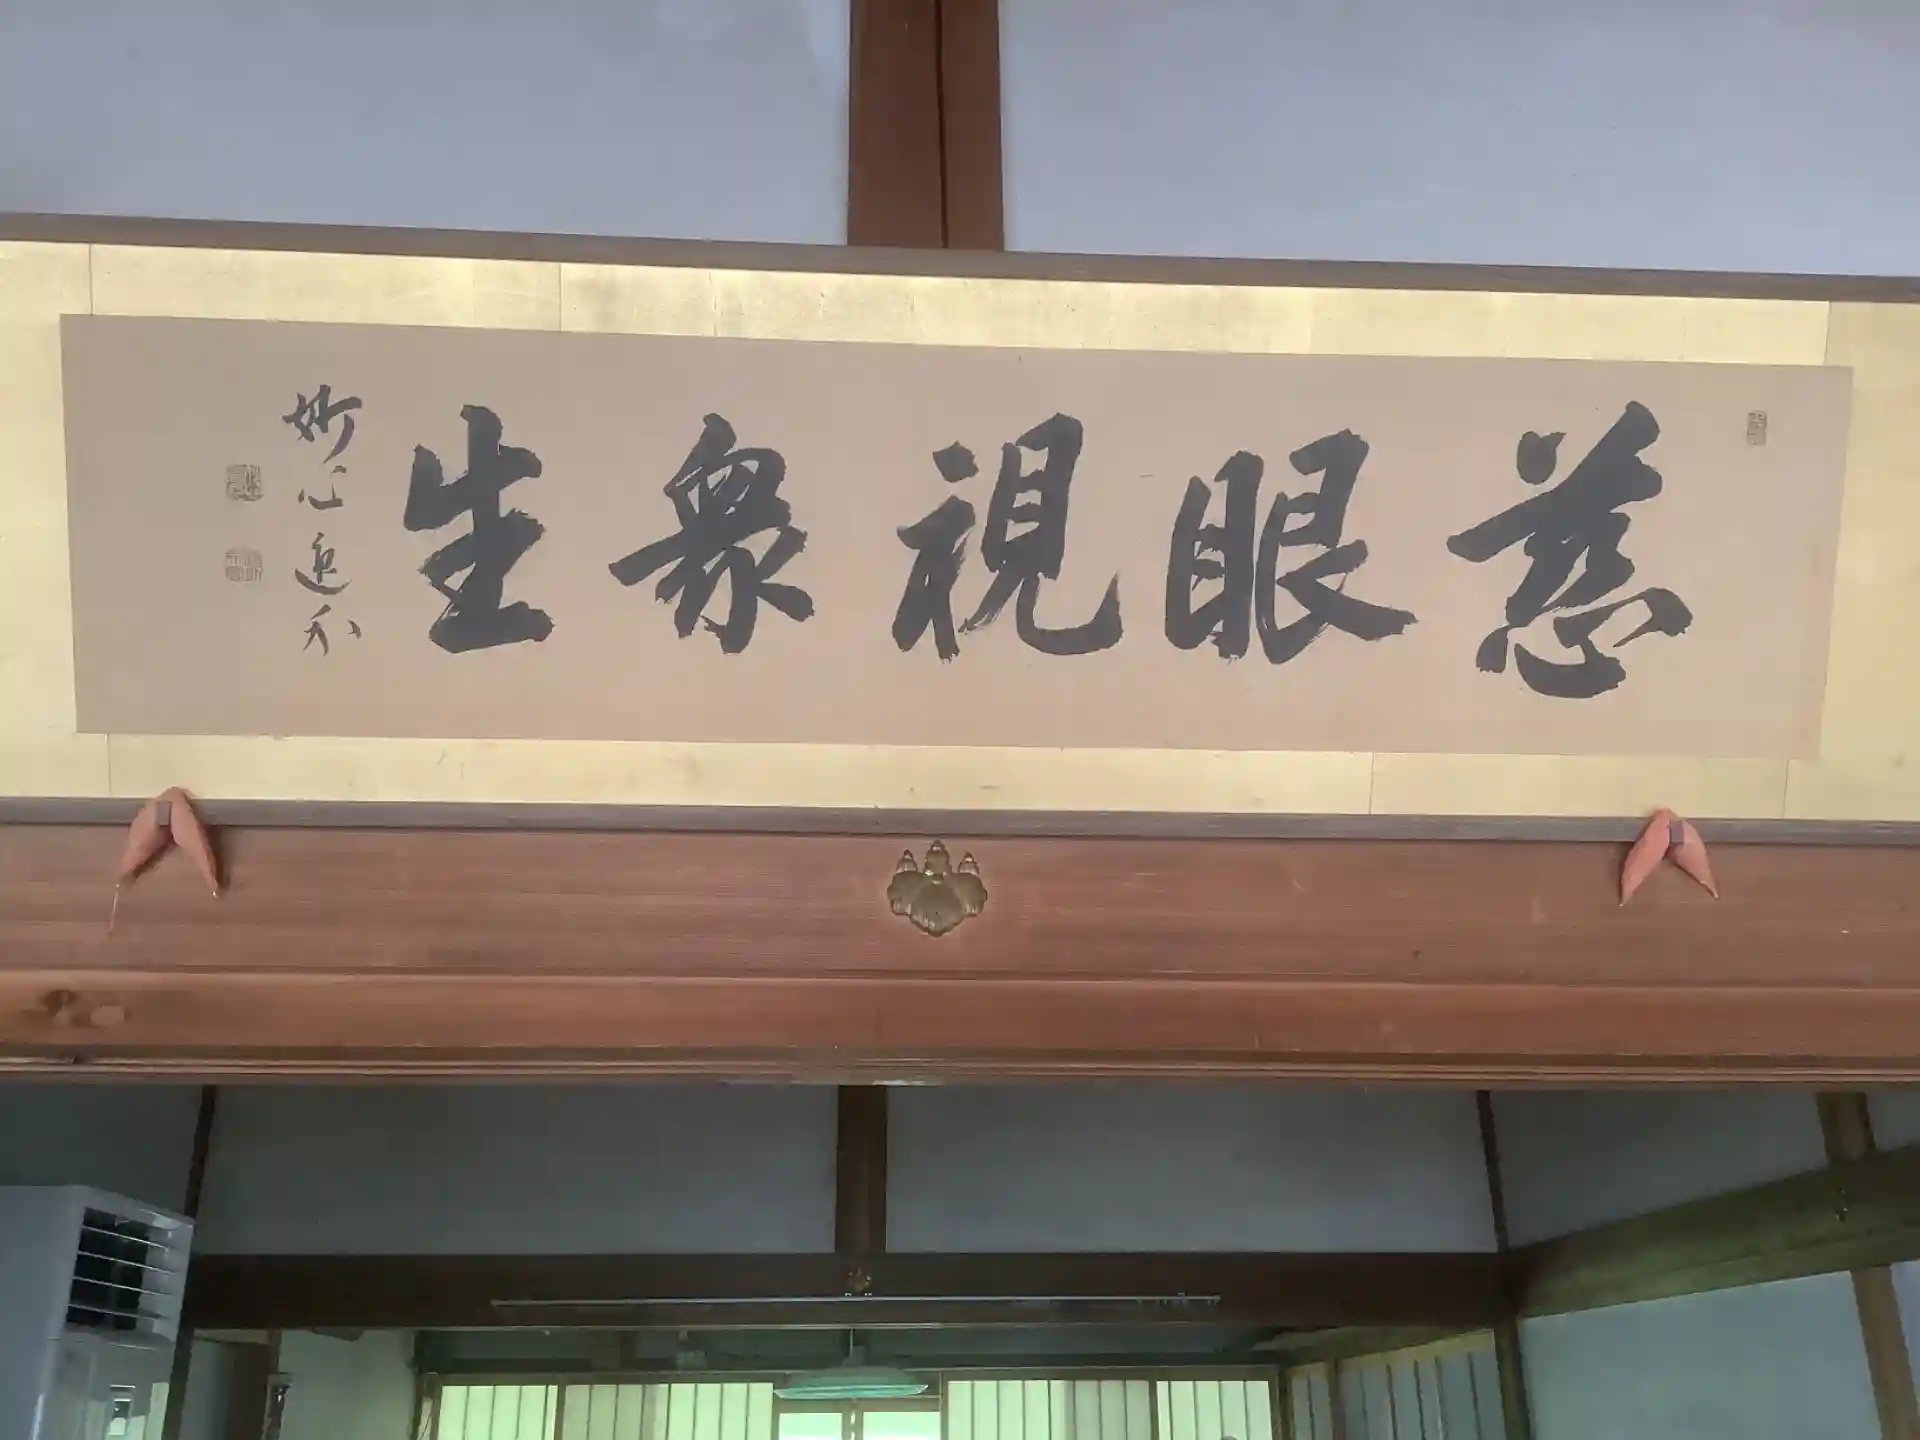 慈眼視衆生
妙心